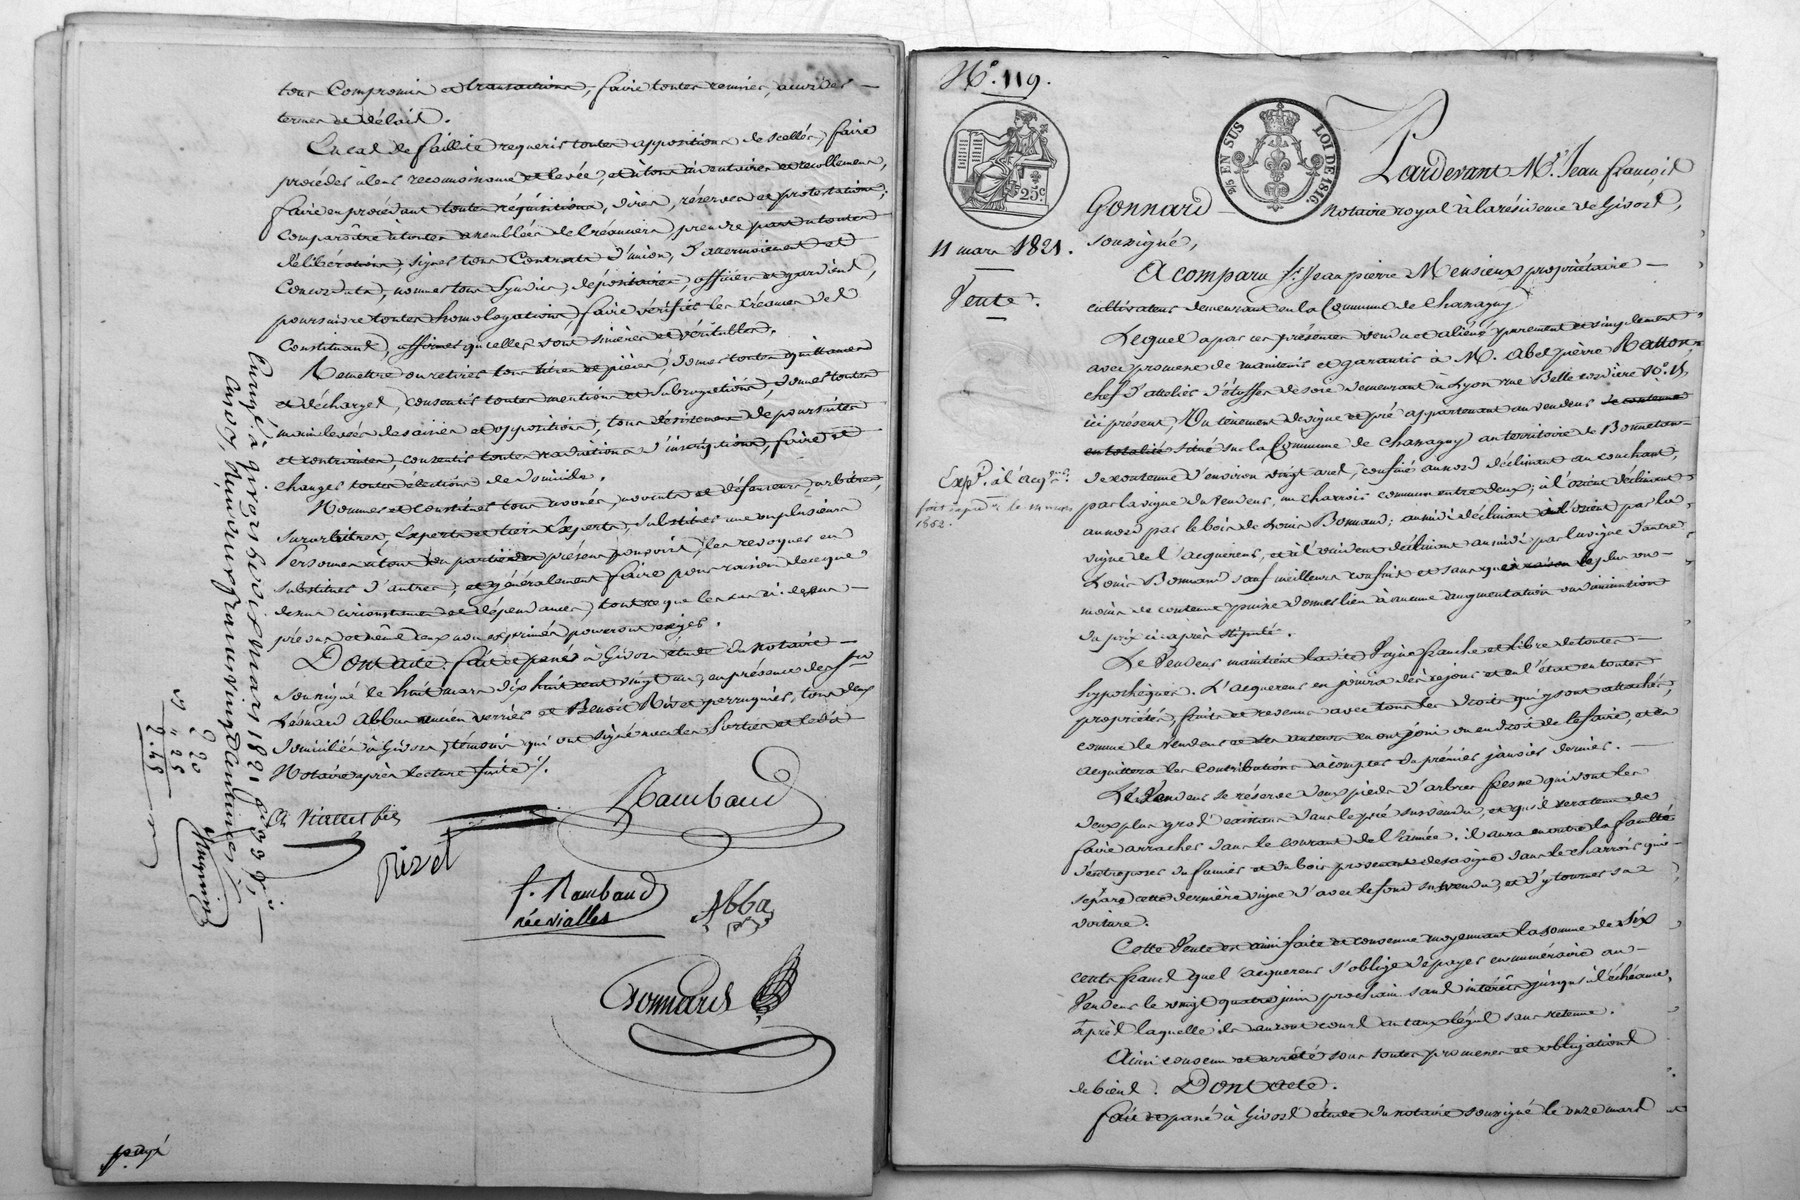 tous Compromis et transactions, faire toutes remises, accorder
termes et délais.
En cas de faillite requérir toutes appositions de scellés, faire
procéder à leur reconnoissance et levée, et à tous inventaires et recollemens,
faire en procédant toutes réquisitions, dires, réserves et protestations;
comparoître à toutes assemblées de Créanciers, prendre part à toutes
délibérations, signer tous Contrats d'union, d'attermoiement et
Concordats, nommer tous Syndics, dépositaires, officiers et gardiens,
poursuivre toutes homologations, faire vérifier les créances des
Constituans, affirmer qu'elles sont sincères et véritables.
Remettre ou retirer tous titres et pièces, donner toutes quittances
et décharges, consentir toutes mentions et subrogations, donner toutes
main levées de saisies et oppositions, tous désistemens de poursuites
et contraintes, consentir toutes radiations d'inscriptions, faire et
changer toutes élections de domicile.
Nommer et constituer tous avoués, avocats et défenseurs, arbitres,
surarbitres, Experts et tiers Experts, substituer une ou plusieurs
Personnes à tout ou partie des présens pouvoirs, les révoquer en
substituer d'autres, et généralement faire pour raison de ce que
dessus circonstances et dépendances, tout ce que les cas ci-dessus
prévus et même ceux non exprimés pourront exiger.
Dont acte. fait et passé à Givors étude du notaire
soussigné le huit mars dix huit cent vingt un, en présence de
Léonard Abba ancien verrier et Benoît Rivet perruquier, tous deux
domiciliés à Givors, témoins qui ont signé avec les parties et ledit
Notaire après lecture faite ./.
Vialles fils
Rambaud
Rivet
f. Rambaud
née vialles
Abba
Gonnard
Enregé à givors le dix mars 1821 f°
reçu deux francs vingt centimes,
2 20
" 25
2.45
payé
N°. 119.
25c
95 EN SUS LOI DE 1816
11 mars 1821.
Vente.
Expon. à l'acqr.
1862.
Pardevant Me. Jean françois
Gonnard notaire royal à la résidence de Givors,
soussigné,
A comparu Sr. Jean pierre Mensieux propriétaire
cultivateur demeurant en la Commune de Chassagny
Lequel a par ces présentes vendu et aliéné purement et simplement
avec promesse de maintenir et garantir à M. Abel pierre Ratton,
chef d'atteliers d'étoffes de soie demeurant à Lyon rue Belle cordière N°. 15,
ici présent, Un tènement de vigne et pré appartenant au vendeur de contenue
en totalité situé sur la Commune de Chassagny au territoire de Bonnetou-
de contenue d'environ vingt ares, confiné au nord déclinant au couchant,
par la vigne du vendeur, un charroir commun entre deux; à l'orient déclinant
au nord par le bois de Louis Bonnand; au midi déclinant à l'orient par la
vigne de l'acquéreur, et à l'occident déclinant au midi par la vigne d'autre
Louis Bonnand sauf meilleurs confins et sans que le plus ou
moins de contenue puisse donner lieu à aucune augmentation ou diminution
du prix ci après stipulé.
Le Vendeur maintient ladite Vigne franche et libre de toutes
hypothèques. L'acquéreur en jouira dès ce jour et en l'état en toute
propriété, fruits et revenus avec tous les droits qui y sont attachés,
comme le vendeur et ses auteurs en ont joui ou eu droit de le faire, et en
acquittera les contributions à compter du premier janvier dernier.
Le Vendeur se réserve deux pieds d'arbres fresne qui sont les
deux plus gros existans dans le pré sus vendu, et qu'il sera tenu de
faire arracher dans le courant de l'année. il aura en outre la faculté
d'entreposer du fumier et du bois provenant de sa vigne dans le charroir qui
sépare cette dernière vigne d'avec le fond sus vendu, et d'y tourner sa
voiture.
Cette Vente est ainsi faite et convenue moyennant la somme de six
cents francs que l'acquéreur s'oblige de payer en numéraire au
Vendeur le vingt quatre juin prochain sans intérêts jusqu'à l'échéance,
après laquelle ils auront cours au taux légal sans retenue.
Ainsi convenu et arrêté sous toutes promesses et obligations
de biens. Dont acte.
fait et passé à Givors étude du notaire soussigné le onze mars